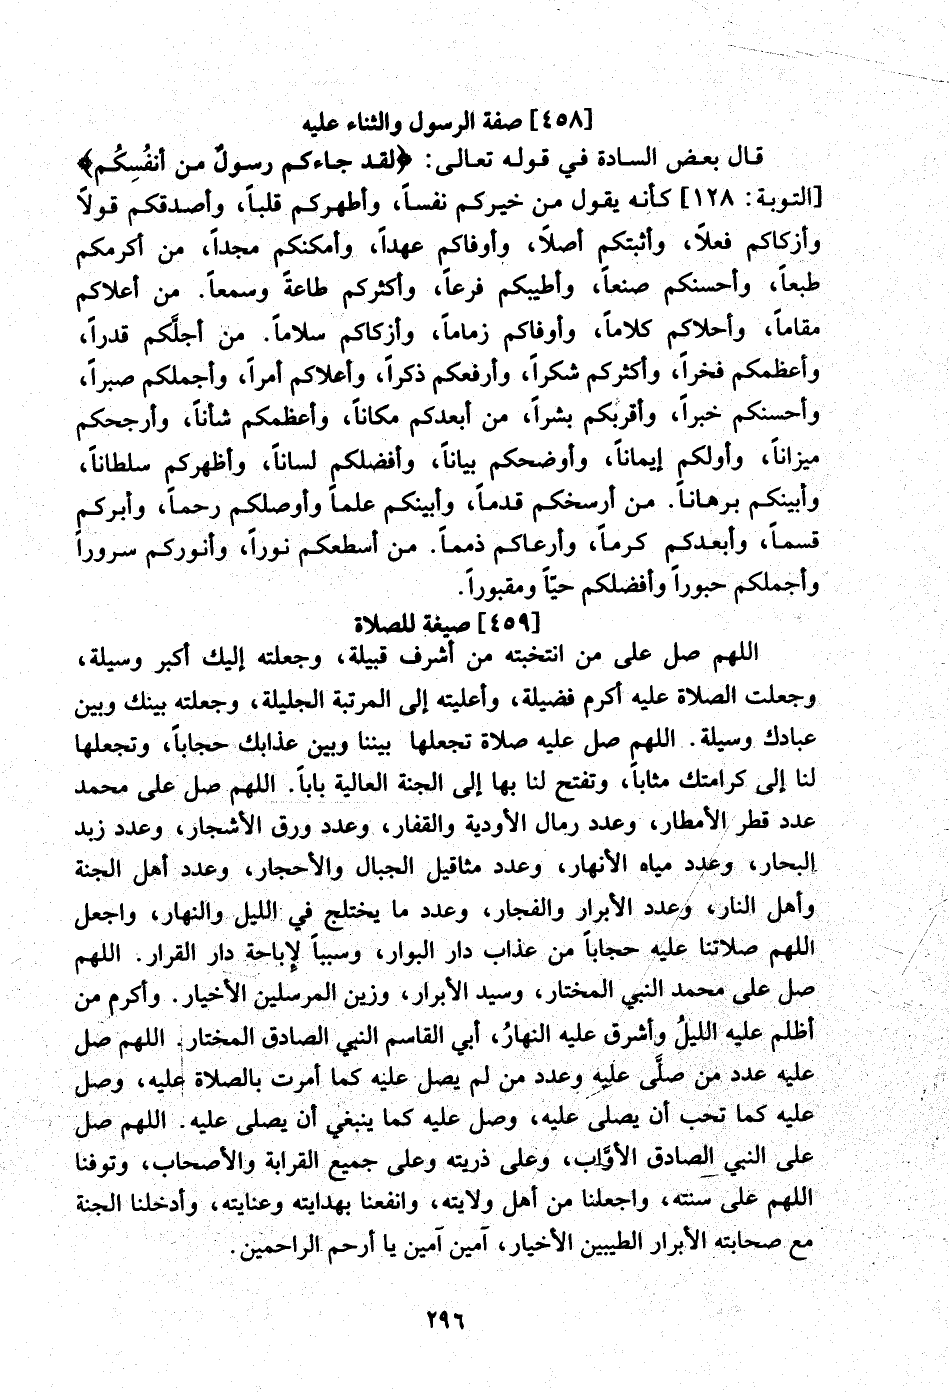 [٤٥٨] صفة الرسول والثناء عليه
قال بعض السادة في قوله تعالى: ﴿لقد جاءكم رسولٌ من أنفُسِكُم﴾
[التوبة: ١٢٨] كأنه يقول من خيركم نفساً، وأطهركم قلباً، وأصدقكم قولاً
وأزكاكم فعلاً، وأثبتكم أصلاً، وأوفاكم عهداً، وأمكنكم مجداً، من أكرمكم
طبعاً، وأحسنكم صنعاً، وأطيبكم فرعاً، وأكثركم طاعةً وسمعاً. من أعلاكم
مقاماً، وأحلاكم كلاماً، وأوفاكم زماماً، وأزكاكم سلاماً. من أجلَّكم قدراً،
وأعظمكم فخراً، وأكثركم شكراً، وأرفعكم ذكراً، وأعلاكم أمراً، وأجملكم صبراً،
وأحسنكم خبراً، وأقربكم بشراً، من أبعدكم مكاناً، وأعظمكم شأناً، وأرجحكم
ميزاناً، وأولكم إيماناً، وأوضحكم بياناً، وأفضلكم لساناً، وأظهركم سلطاناً،
وأبينكم برهاناً. من أرسخكم قدماً، وأبينكم علماً وأوصلكم رحماً، وأبركم
قسماً، وأبعدكم كرماً، وأرعاكم ذمماً. من أسطعكم نوراً، وأنوركم سروراً
وأجملكم حبوراً وأفضلكم حيّاً ومقبوراً.
[٤٥٩] صيغة للصلاة
اللهم صل على من انتخبته من أشرف قبيلة، وجعلته إليك أكبر وسيلة،
وجعلت الصلاة عليه أكرم فضيلة، وأعليته إلى المرتبة الجليلة، وجعلته بينك وبين
عبادك وسيلة. اللهم صل عليه صلاة تجعلها بيننا وبين عذابك حجاباً، وتجعلها
لنا إلى كرامتك مثاباً، وتفتح لنا بها إلى الجنة العالية باباً. اللهم صل على محمد
عدد قطر الأمطار، وعدد رمال الأودية والقفار، وعدد ورق الأشجار، وعدد زبد
البحار، وعدد مياه الأنهار، وعدد مثاقيل الجبال والأحجار، وعدد أهل الجنة
وأهل النار، وعدد الأبرار والفجار، وعدد ما يختلج في الليل والنهار، واجعل
اللهم صلاتنا عليه حجاباً من عذاب دار البوار، وسبباً لإباحة دار القرار. اللهم
صل على محمد النبي المختار، وسيد الأبرار، وزين المرسلين الأخيار. وأكرم من
أظلم عليه الليلُ وأشرق عليه النهارُ، أبي القاسم النبي الصادق المختار. اللهم صل
عليه عدد من صلَّى عليه وعدد من لم يصل عليه كما أمرت بالصلاة عليه، وصل
عليه كما تحب أن يصلى عليه، وصل عليه كما ينبغي أن يصلى عليه. اللهم صل
على النبي الصادق الأوَّاب، وعلى ذريته وعلى جميع القرابة والأصحاب، وتوفنا
اللهم على سنته، واجعلنا من أهل ولايته، وانفعنا بهدايته وعنايته، وأدخلنا الجنة
مع صحابته الأبرار الطيبين الأخيار، آمين آمين يا أرحم الراحمين.
٢٩٦